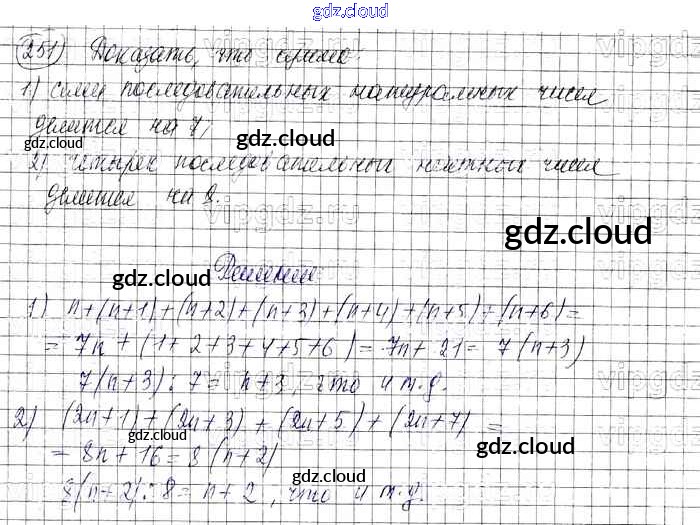 gdz.cloud
251) Доказать, что сумма:
1) семи последовательных натуральных чисел
делится на 7;
gdz.cloud
2) четырех последовательных нечетных чисел
делится на 8.
gdz.cloud
Решение
gdz.cloud
1) n+(n+1)+(n+2)+(n+3)+(n+4)+(n+5)+(n+6)=
= 7n + (1+2+3+4+5+6) = 7n+21= 7(n+3)
7(n+3) : 7 = n+3, что и т.д.
gdz.cloud
gdz.cloud
2) (2n+1)+(2n+3)+(2n+5)+(2n+7) =
gdz.cloud
= 8n+16 = 8(n+2)
gdz.cloud
8(n+2) : 8 = n+2, что и т.д.
gdz.cloud